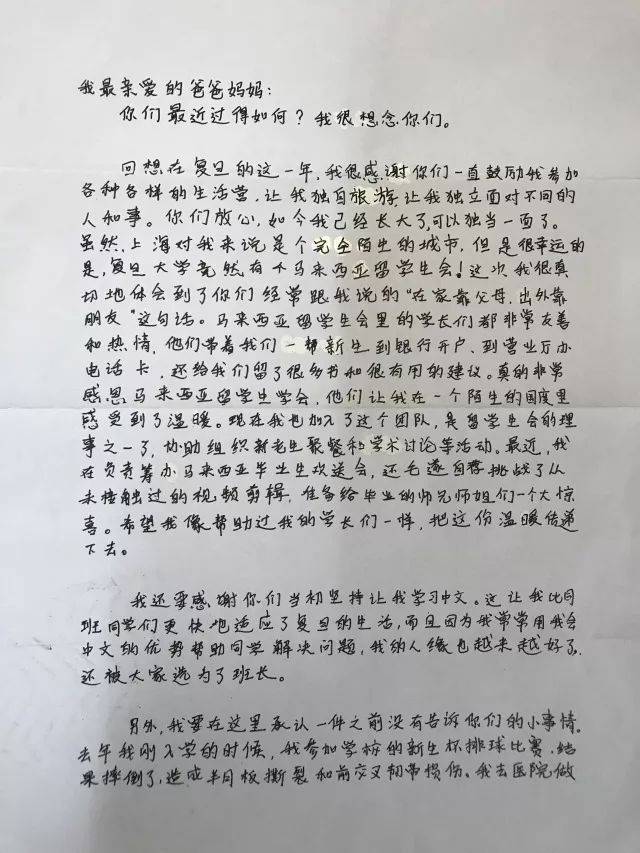 我最亲爱的爸爸妈妈：
你们最近过得如何？我很想念你们。
回想在复旦的这一年，我很感谢你们一直鼓励我参加
各种各样的生活营，让我独自旅游，让我独立面对不同的
人和事。你们放心，如今我已经长大了，可以独当一面了。
虽然，上海对我来说是个完全陌生的城市，但是很幸运的
是，复旦大学竟然有个马来西亚留学生会！这次我很真
切地体会到了你们经常跟我说的“在家靠父母，出外靠
朋友”这句话。马来西亚留学生会里的学长们都非常友善
和热情，他们带着我们一帮新生到银行开户、到营业厅办
电话卡，还给我们留了很多书和很有用的建议。真的非常
感恩马来西亚留学生学会，他们让我在一个陌生的国度里
感受到了温暖。现在我也加入了这个团队，是留学生会的理
事之一了，协助组织新老生聚餐和学术讨论等活动。最近，我
在负责筹办马来西亚毕业生欢送会，还毛遂自荐挑战了从
未接触过的视频剪辑，准备给毕业的师兄师姐们一个大惊
喜。希望我像帮助过我的学长们一样，把这份温暖传递
下去。
我还要感谢你们当初坚持让我学习中文。这让我比同
班同学们更快地适应了复旦的生活，而且因为我常常用我会
中文的优势帮助同学解决问题，我的人缘也越来越好了，
还被大家选为了班长。
另外，我要在这里承认一件之前没有告诉你们的小事情。
去年我刚入学的时候，我参加学校的新生杯排球比赛，结
果摔倒了，造成半月板撕裂和前交叉韧带损伤。我去医院做